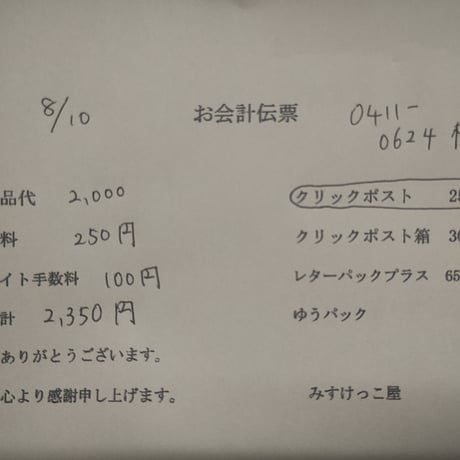 8/10
お会計伝票
0411-
0624 様
品代 2,000
料 250円
イト手数料 100円
計 2,350円
ありがとうございます。
心より感謝申し上げます。
クリックポスト 25
クリックポスト箱 30
レターパックプラス 65
ゆうパック
みすけっこ屋